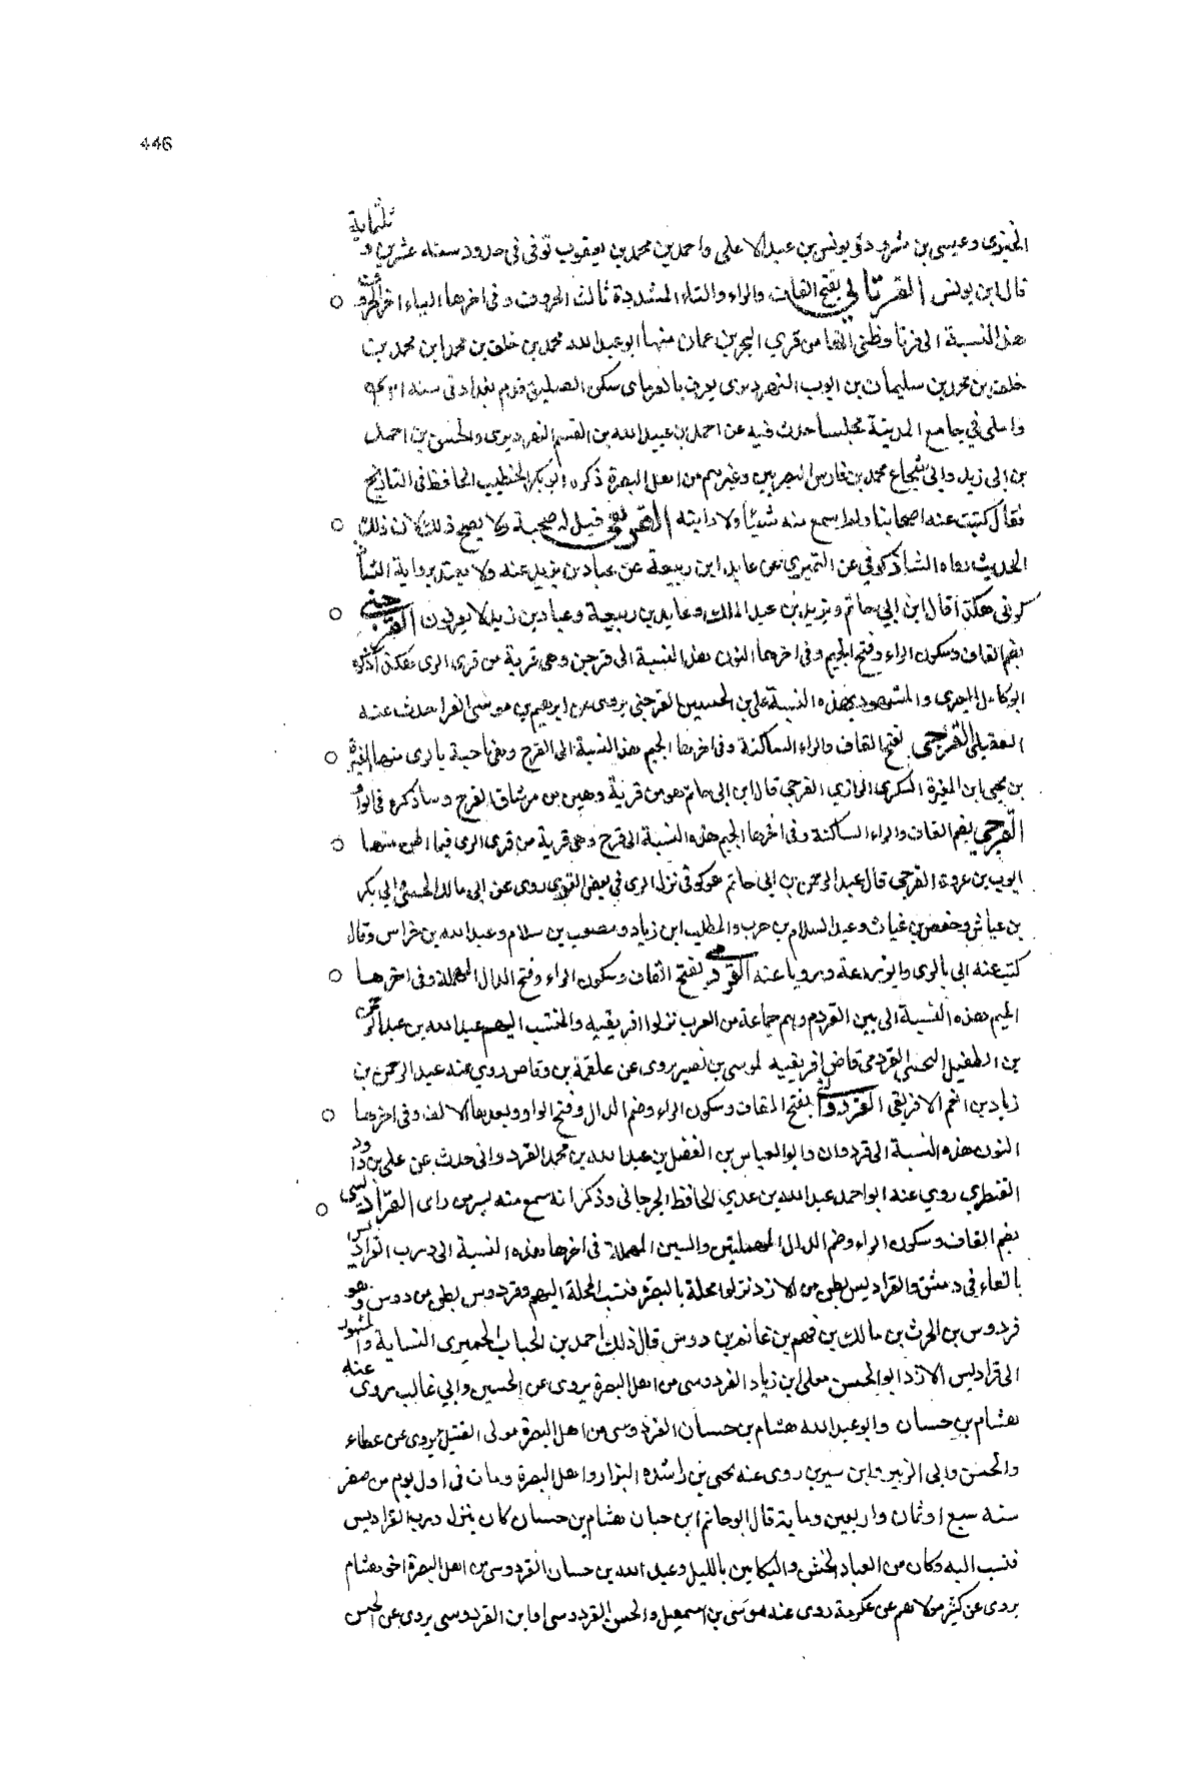 446
ثلثماية
الجيزى وعيسى بن مثرود ويونس بن عبد الاعلى واحمد بن محمد بن يعقوب توفى فى حدود سنه عشرين و
قال ابن يونس القرتاى بفتح القاف والراء والتاء المشددة ثالث الحروف وفى اخرها الياء اخر الحروف
هذه النسبة الى قرتا وظنى انها من قرى البحرين عمان منها ابو عبد الله محمد بن خلف بن محمد ابن محمد بن
خلف بن محمد بن سليمان بن ايوب النهرديرى يعرف بالقرتاى سكن الصليق قدم بغداد فى سنه
واملى فى جامع المدينة مجلسا حدث فيه عن احمد بن عبيد الله بن القسم النهرديرى والحسن بن احمد
بن ابى زيد وابى شجاع محمد بن فارس البصريين وغيرهم من اهل البصرة ذكره ابو بكر الخطيب الحافظ فى التاريخ
فقال كتبت عنه اصحابنا ولم يسمع منه شيئا ولا رايته القرثعى قيل له صحبة ولا يصح ذلك لان ذلك
الحديث رواه الشاذكونى عن النميرى عن عايد ابن ربيعة عن عباد بن يزيد عنه ولا يعتد برواية الشا
كونى هكذا قال ابن ابى حاتم ويزيد بن عبد الملك وعايد بن ربيعة وعباد بن زيد لا يعرفون القرجنى
بضم القاف وسكون الراء وفتح الجيم وفى اخرها النون هذه النسبة الى قرجن وهى قرية من قرى الرى هكذا ذكره
ابو كامل البصرى والمشهور بهذه النسبة على بن الحسين القرجنى يروى عن ابرهيم بن موسى الفرا حدث عنه
العقيلى القرجى بفتح القاف والراء الساكنة وفى اخرها الجيم هذه النسبة الى القرج وهى ناحية بالرى منها المغيرة
بن يحيى ابن المغيرة السكرى الرازى القرجى قال ابن ابى حاتم هو من قرية وهبن من رستاق القرج وساذكره فى الواو
القرجى بضم القاف والراء الساكنة وفى اخرها الجيم هذه النسبة الى قرج وهى قرية من قرى الرى فيما اظن منها
ايوب بن عروة القرجى قال عبد الرحمن بن ابى حاتم هو كوفى نزل الرى فى بعض القرى روى عن ابى مالك الجنبى وابى بكر
بن عياش وحفص بن غياث وعبد السلام بن حرب والمطلب ابن زياد ومصعب بن سلام وعبد الله بن خراش وقال
كتب عنه ابى بالرى وابو زرعة ورويا عنه القردمى بفتح القاف وسكون الراء وفتح الدال المهملة وفى اخرها
الميم هذه النسبة الى بين القردم وهم جماعة من العرب نزلوا افريقيه والمنتسب اليهم عبد الله بن عبد الرحمن
بن الطفيل القردمى قاضى افريقيه لموسى بن نصير يروى عن علقمة بن وقاص روى عنه عبد الرحمن بن
زياد بن انعم الافريقى القردوانى بفتح القاف وسكون الراء وضم الدال وفتح الواو وبعدها الالف وفى اخرها
النون هذه النسبة الى قردوان وابو العباس بن الفضل بن عبد الله بن محمد القردوانى حدث عن على بن داود
القنطرى روى عنه ابو احمد عبد الله بن عدى الحافظ الجرجانى وذكر انه سمع منه بسر من راى القراديسى
بضم القاف وسكون الراء وضم الدال المهملتين والسين المهملة فى اخرها هذه النسبة الى درب القراديس
بالفاء فى دمشق والقراديس بطن من الازد نزلوا محلة بالبصرة فنسب المحلة اليهم وقردوس بطن من دوس وهو
قردوس بن الحرث بن مالك بن فهم بن غانم بن دوس قال ذلك احمد بن الحباب الحميرى النسابة والمشهور
الى قراديس الازد ابو الحسن معلى ابن زياد القردوسى من اهل البصرة يروى عن الحسين وابى غالب يروى عنه
هشام بن حسان وابو عبد الله هشام بن حسان القردوسى من اهل البصرة مولى العتيك يروى عن عطاء
والحسن وابى الزبير وابن سيرين روى عنه يحيى بن راشد البزار واهل البصرة ومات فى اول يوم من صفر
سنه سبع او ثمان واربعين وماية قال ابو حاتم ابن حبان هشام بن حسان كان ينزل درب القراديس
فنسب اليه وكان من العباد الخشن والبكايين بالليل وعبد الله بن حسان القردوسى من اهل البصرة اخو هشام
يروى عن كثير مولاهم عن عكرمة روى عنه موسى بن اسمعيل والحسن القردوسى اما ابن القردوسى يروى عن الحسن